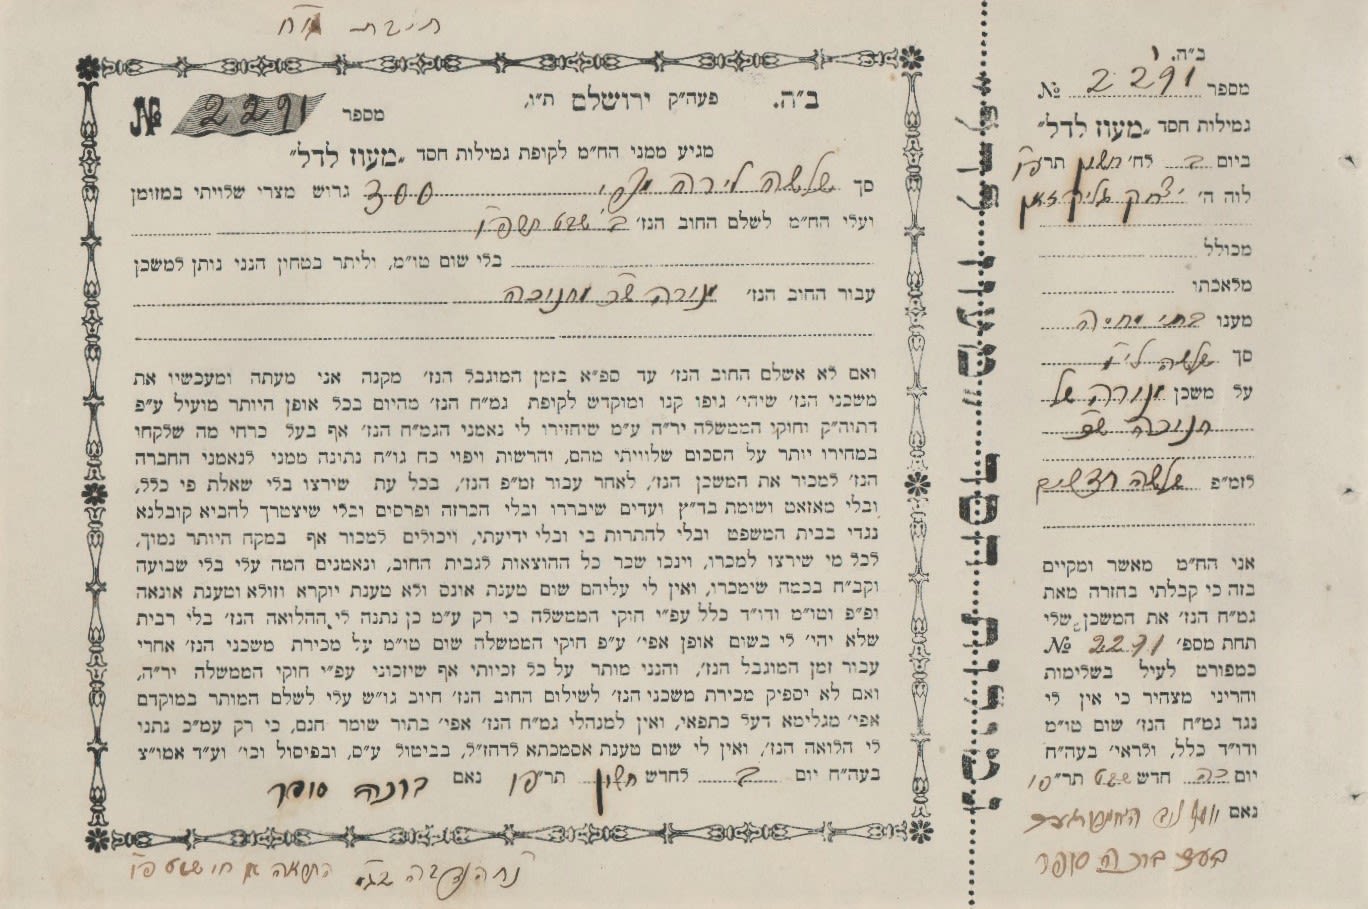 תיבת
ב״ה. פעה״ק ירושלם ת״ו,
מספר 2291 №
מגיע ממני הח״מ לקופת גמילות חסד „מעוז לדל״
סך שלשה לירה גרוש מצרי שלויתי במזומן
ועלי הח״מ לשלם החוב הנז׳ ב׳ שבט תשפ״ו
בלי שום טו״מ, וליתר בטחון הנני נותן למשכן
עבור החוב הנז׳ מנורה של חנוכה
ואם לא אשלם החוב הנז׳ עד ספ״א בזמן המוגבל הנז׳ מקנה אני מעתה ומעכשיו את
משכני הנז׳ שיהי׳ גופו קנו ומוקדש לקופת גמ״ח הנז׳ מהיום בכל אופן היותר מועיל ע״פ
דתוה״ק וחוקי הממשלה יר״ה ע״מ שיחזירו לי נאמני הגמ״ח הנז׳ אף בעל כרחי מה שלקחו
במחירו יותר על הסכום שלוויתי מהם, והרשות ויפוי כח גו״ח נתינה ממני לנאמני החברה
הנז׳ למכיר את המשכן הנז׳, לאחר עבור זמ״פ הנז׳, בכל עת שירצו בלי שאלת פי כלל,
ובלי מאזאט ושומת בד״ץ ועדים שיבררו ובלי הכרזה ופרסום ובלי שיצטרך להביא קובלנא
נגדי בבית המשפט ובלי להתרות בי ובלי ידיעתי, ויכולים למכור אף במקח היותר נמוך,
לכל מי שירצו למכרו, וינכו שכר כל ההוצאות לגבית החוב, ונאמנים המה עלי בלי שבועה
וקב״ח בכמה שימכרו, ואין לי עליהם שום טענת אונס ולא טענת יוקרא וזולא וטענת אונאה
ופ״פ וטו״מ ודו״ד כלל עפ״י חוקי הממשלה כי רק ע״מ כן נתנה לי ההלואה הנז׳ בלי רבית
שלא יהי׳ לי בשום אופן אפי׳ ע״פ חוקי הממשלה שום טו״מ על מכירת משכני הנז׳ אחרי
עבור זמן המוגבל הנז׳, והנני מותר על כל זכיותי אף שיזכוני עפ״י חוקי הממשלה יר״ה,
ואם לא יספיק מכירת משכני הנז׳ לשילום החוב הנז׳ חיוב גו״ש עלי לשלם המותר במוקדם
אפי׳ מגלימא דעל כתפאי, ואין למנהלי גמ״ח הנז׳ אפי׳ בתור שומר חנם, כי רק עמ״כ נתנו
לי הלואה הנז׳, ואין לי שום טענת אסמכתא לדחז״ל, בביטול ע״ס, ובפיסול וכו׳ וע״ד אמו״צ
בעה״ח יום ב לחדש חשון תר״פו נאם ברכה סופר
ב״ה.
מספר 2291 №
גמילות חסד „מעוז לדל״
ביום ב לח׳ חשון תרפ״ו
לוה ה׳ יצחק
מכולל
מלאכתו
מענו בתי מחסה
סך שלשה לי״
על משכן מנורה של
חנוכה
לזמ״פ שלשה חדשים
אני הח״מ מאשר ומקיים
בזה כי קבלתי בחזרה מאת
גמ״ח הנז׳ את המשכן שלי
תחת מספ׳ 2291 №
כמפורט לעיל בשלימות
והריני מצהיר כי אין לי
נגד גמ״ח הנז׳ שום טו״מ
ודו״ד כלל, ולראי׳ בעה״ח
יום כה חדש שבט תר״פו
נאם
בעד ברכה סופר